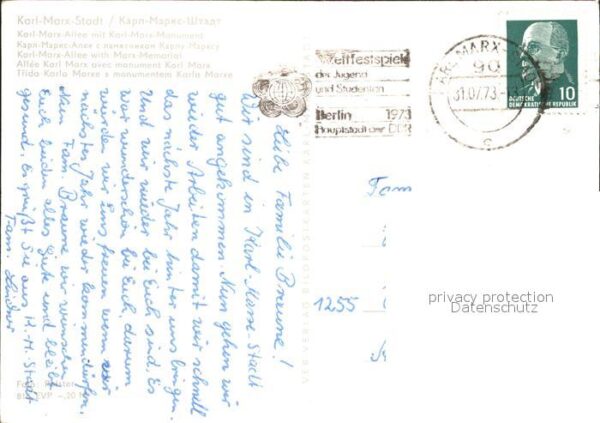 Karl-Marx-Stadt / Карл-Маркс-Штадт
Karl-Marx-Allee mit Karl-Marx-Monument
Карл-Маркс-Аллее с памятником Карлу Марксу
Karl-Marx-Allee with Marx-Memorial
Allée Karl Marx avec monument Karl Marx
Třída Karla Marxe s monumentem Karla Marxe
Liebe Familie Braune!
Wir sind in Karl-Marx-Stadt
gut angekommen. Nun gehen wir
wieder Arbeiten damit wir schnell
das nächste Jahr hinter uns bringen.
Und wir wieder bei Euch sind. Es
war wunderschön bei Euch, darum
würden wir uns freuen wenn wir
nächstes Jahr wieder kommen dürfen.
Fam. Braune wir wünschen
Euch beiden alles Gute und bleibt
gesund. Es grüßt Sie aus K.-M.-Stadt
Fam.
Weltfestspiele
der Jugend
und Studenten
Berlin 1973
Hauptstadt der DDR
KARL-MARX-STADT
90
31.07.73
c
DEUTSCHE
DEMOKRATISCHE REPUBLIK
10
Fam
1255
privacy protection
Datenschutz
VEB VERLAG BILDPOSTKARTEN
Foto:
EVP -,20 M